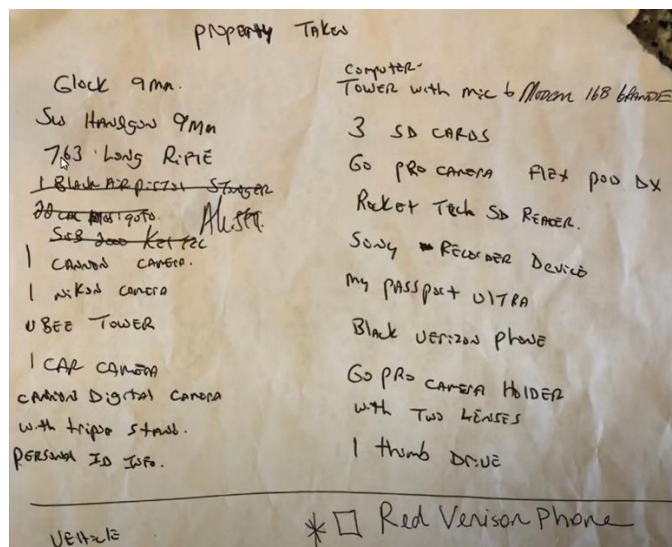 PROPERTY TAKEN
GLOCK 9mm.
SW HANDGUN 9mm
7.63 LONG RIFLE
1 BLACK AIR PISTOL STINGER
22 CAL
SUB 2000 KEL TEC
1 CANNON CAMERA.
1 NIKON CAMERA
UBEE TOWER
1 CAR CAMERA
CANNON DIGITAL CAMERA
with tripod STAND.
PERSONAL ID INFO.
VEHICLE
COMPUTER-
TOWER with mic 6 MODEM 168
3 SD CARDS
GO PRO CAMERA FLEX POD DX
ROCKET TECH SD READER.
SONY RECORDER DEVICE
my PASSPORT ULTRA
BLACK VERIZON PHONE
GO PRO CAMERA HOLDER
with TWO LENSES
1 thumb DRIVE
* □ Red Verison Phone